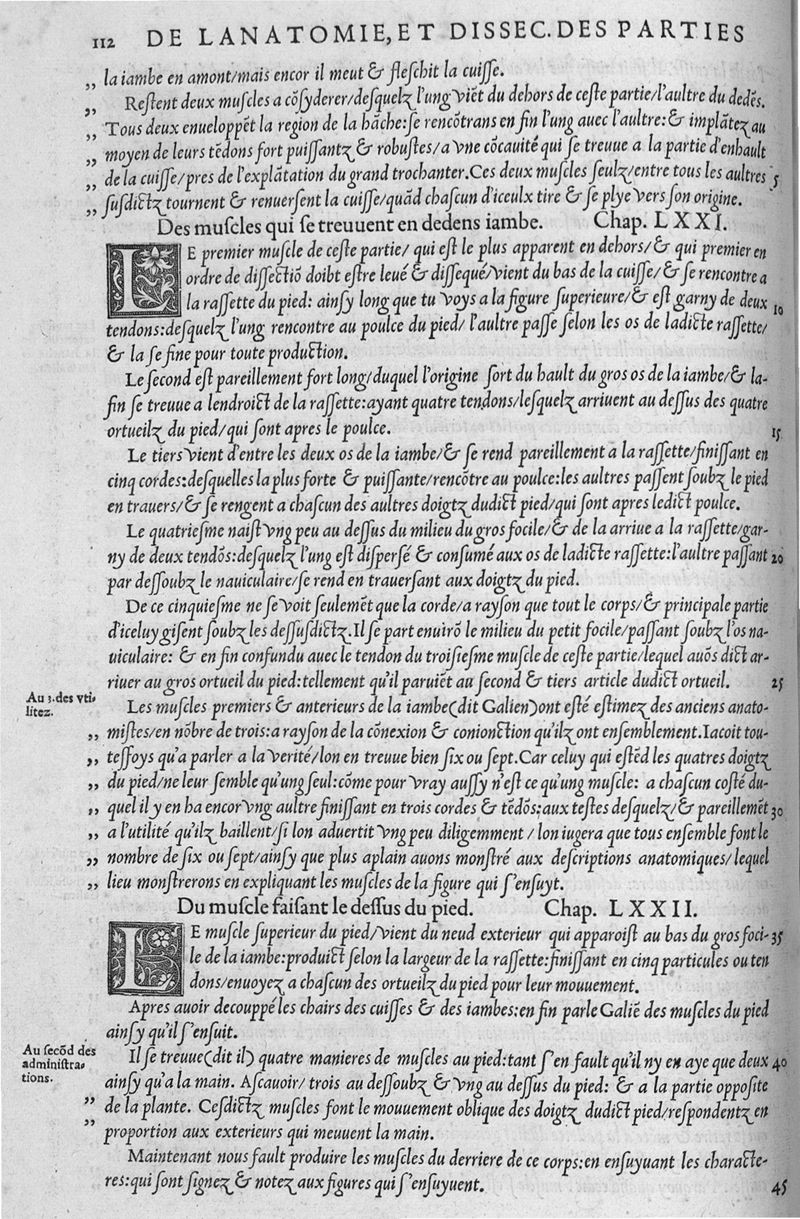 112 DE LANATOMIE, ET DISSEC. DES PARTIES
„ la iambe en amont/mais encor il meut & fleschit la cuisse.
„ Restent deux muscles a cõsyderer/desquelz l'ung viẽt du dehors de ceste partie/l'aultre du dedẽs.
„ Tous deux enueloppẽt la region de la hãche:se rencõtrans en fin l'ung auec l'aultre:& implãtez au
„ moyen de leurs tẽdons fort puissantz & robustes/a vne cõcauité qui se treuue a la partie d'enhault
„ de la cuisse/pres de l'explãtation du grand trochanter.Ces deux muscles seulz/entre tous les aultres 5
„ susdictz tournent & renuersent la cuisse/quãd chascun d'iceulx tire & se plye vers son origine.
Des muscles qui se treuuent en dedens iambe. Chap. LXXI.
LE premier muscle de ceste partie/ qui est le plus apparent en dehors/& qui premier en
ordre de dissectiõ doibt estre leué & dissequé/vient du bas de la cuisse/& se rencontre a
la rassette du pied: ainsy long que tu voys a la figure superieure/& est garny de deux 10
tendons:desquelz l'ung rencontre au poulce du pied/ l'aultre passe selon les os de ladicte rassette/
& la se fine pour toute production.
Le second est pareillement fort long/duquel l'origine sort du hault du gros os de la iambe/& la-
fin se treuue a lendroict de la rassette:ayant quatre tendons/lesquelz arriuent au dessus des quatre
ortueilz du pied/qui sont apres le poulce. 15
Le tiers vient d'entre les deux os de la iambe/& se rend pareillement a la rassette/finissant en
cinq cordes:desquelles la plus forte & puissante/rencõtre au poulce:les aultres passent soubz le pied
en trauers/& se rengent a chascun des aultres doigtz dudict pied/qui sont apres ledict poulce.
Le quatriesme naist vng peu au dessus du milieu du gros focile/& de la arriue a la rassette/gar-
ny de deux tendõs:desquelz l'ung est dispersé & consumé aux os de ladicte rassette:l'aultre passant 20
par dessoubz le nauiculaire/se rend en trauersant aux doigtz du pied.
De ce cinquiesme ne se voit seulemẽt que la corde/a rayson que tout le corps/& principale partie
d'iceluy gisent soubz les dessusdictz.Il se part enuirõ le milieu du petit focile/passant soubz l'os na-
uiculaire: & en fin confundu auec le tendon du troisiesme muscle de ceste partie/lequel auõs dict ar-
riuer au gros ortueil du pied:tellement qu'il paruiẽt au second & tiers article dudict ortueil. 25
Au 3.des vti-
litez.
Les muscles premiers & anterieurs de la iambe(dit Galien)ont esté estimez des anciens anato-
„ mistes/en nõbre de trois:a rayson de la cõnexion & conionction qu'ilz ont ensemblement.Iacoit tou-
„ tessoys qu'a parler a la verité/lon en treuue bien six ou sept.Car celuy qui estẽd les quatres doigtz
„ du pied/ne leur semble qu'ung seul:cõme pour vray aussy n'est ce qu'ung muscle: a chascun costé du-
„ quel il y en ha encor vng aultre finissant en trois cordes & tẽdõs:aux testes desquelz/& pareillemẽt 30
„ a l'utilité qu'ilz baillent/si lon aduertit vng peu diligemment / lon iugera que tous ensemble font le
„ nombre de six ou sept/ainsy que plus aplain auons monstré aux descriptions anatomiques/lequel
„ lieu monstrerons en expliquant les muscles de la figure qui s'ensuyt.
Du muscle faisant le dessus du pied. Chap. LXXII.
LE muscle superieur du pied/vient du neud exterieur qui apparoist au bas du gros foci- 35
le de la iambe:produict selon la largeur de la rassette:finissant en cinq particules ou ten
dons/enuoyez a chascun des ortueilz du pied pour leur mouuement.
Apres auoir decouppé les chairs des cuisses & des iambes:en fin parle Galiẽ des muscles du pied
ainsy qu'il s'ensuit.
Au secõd des
administra-
tions.
Il se treuue(dit il) quatre manieres de muscles au pied:tant s'en fault qu'il ny en aye que deux 40
ainsy qu'a la main. Ascauoir/ trois au dessoubz & vng au dessus du pied: & a la partie opposite
„ de la plante. Cesdictz muscles font le mouuement oblique des doigtz dudict pied/respondentz en
„ proportion aux exterieurs qui meuuent la main.
Maintenant nous fault produire les muscles du derriere de ce corps:en ensuyuant les characte-
res:qui sont signez & notez aux figures qui s'ensuyuent. 45